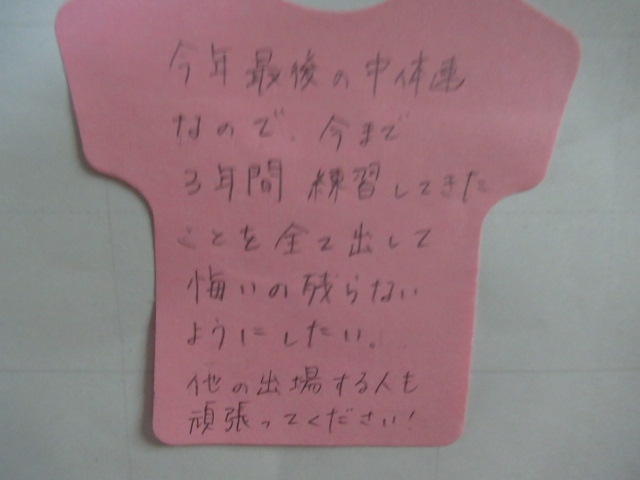 今年最後の中体連
なので、今まで
3年間練習してきた
ことを全て出して
悔いの残らない
ようにしたい。
他の出場する人も
頑張ってください!